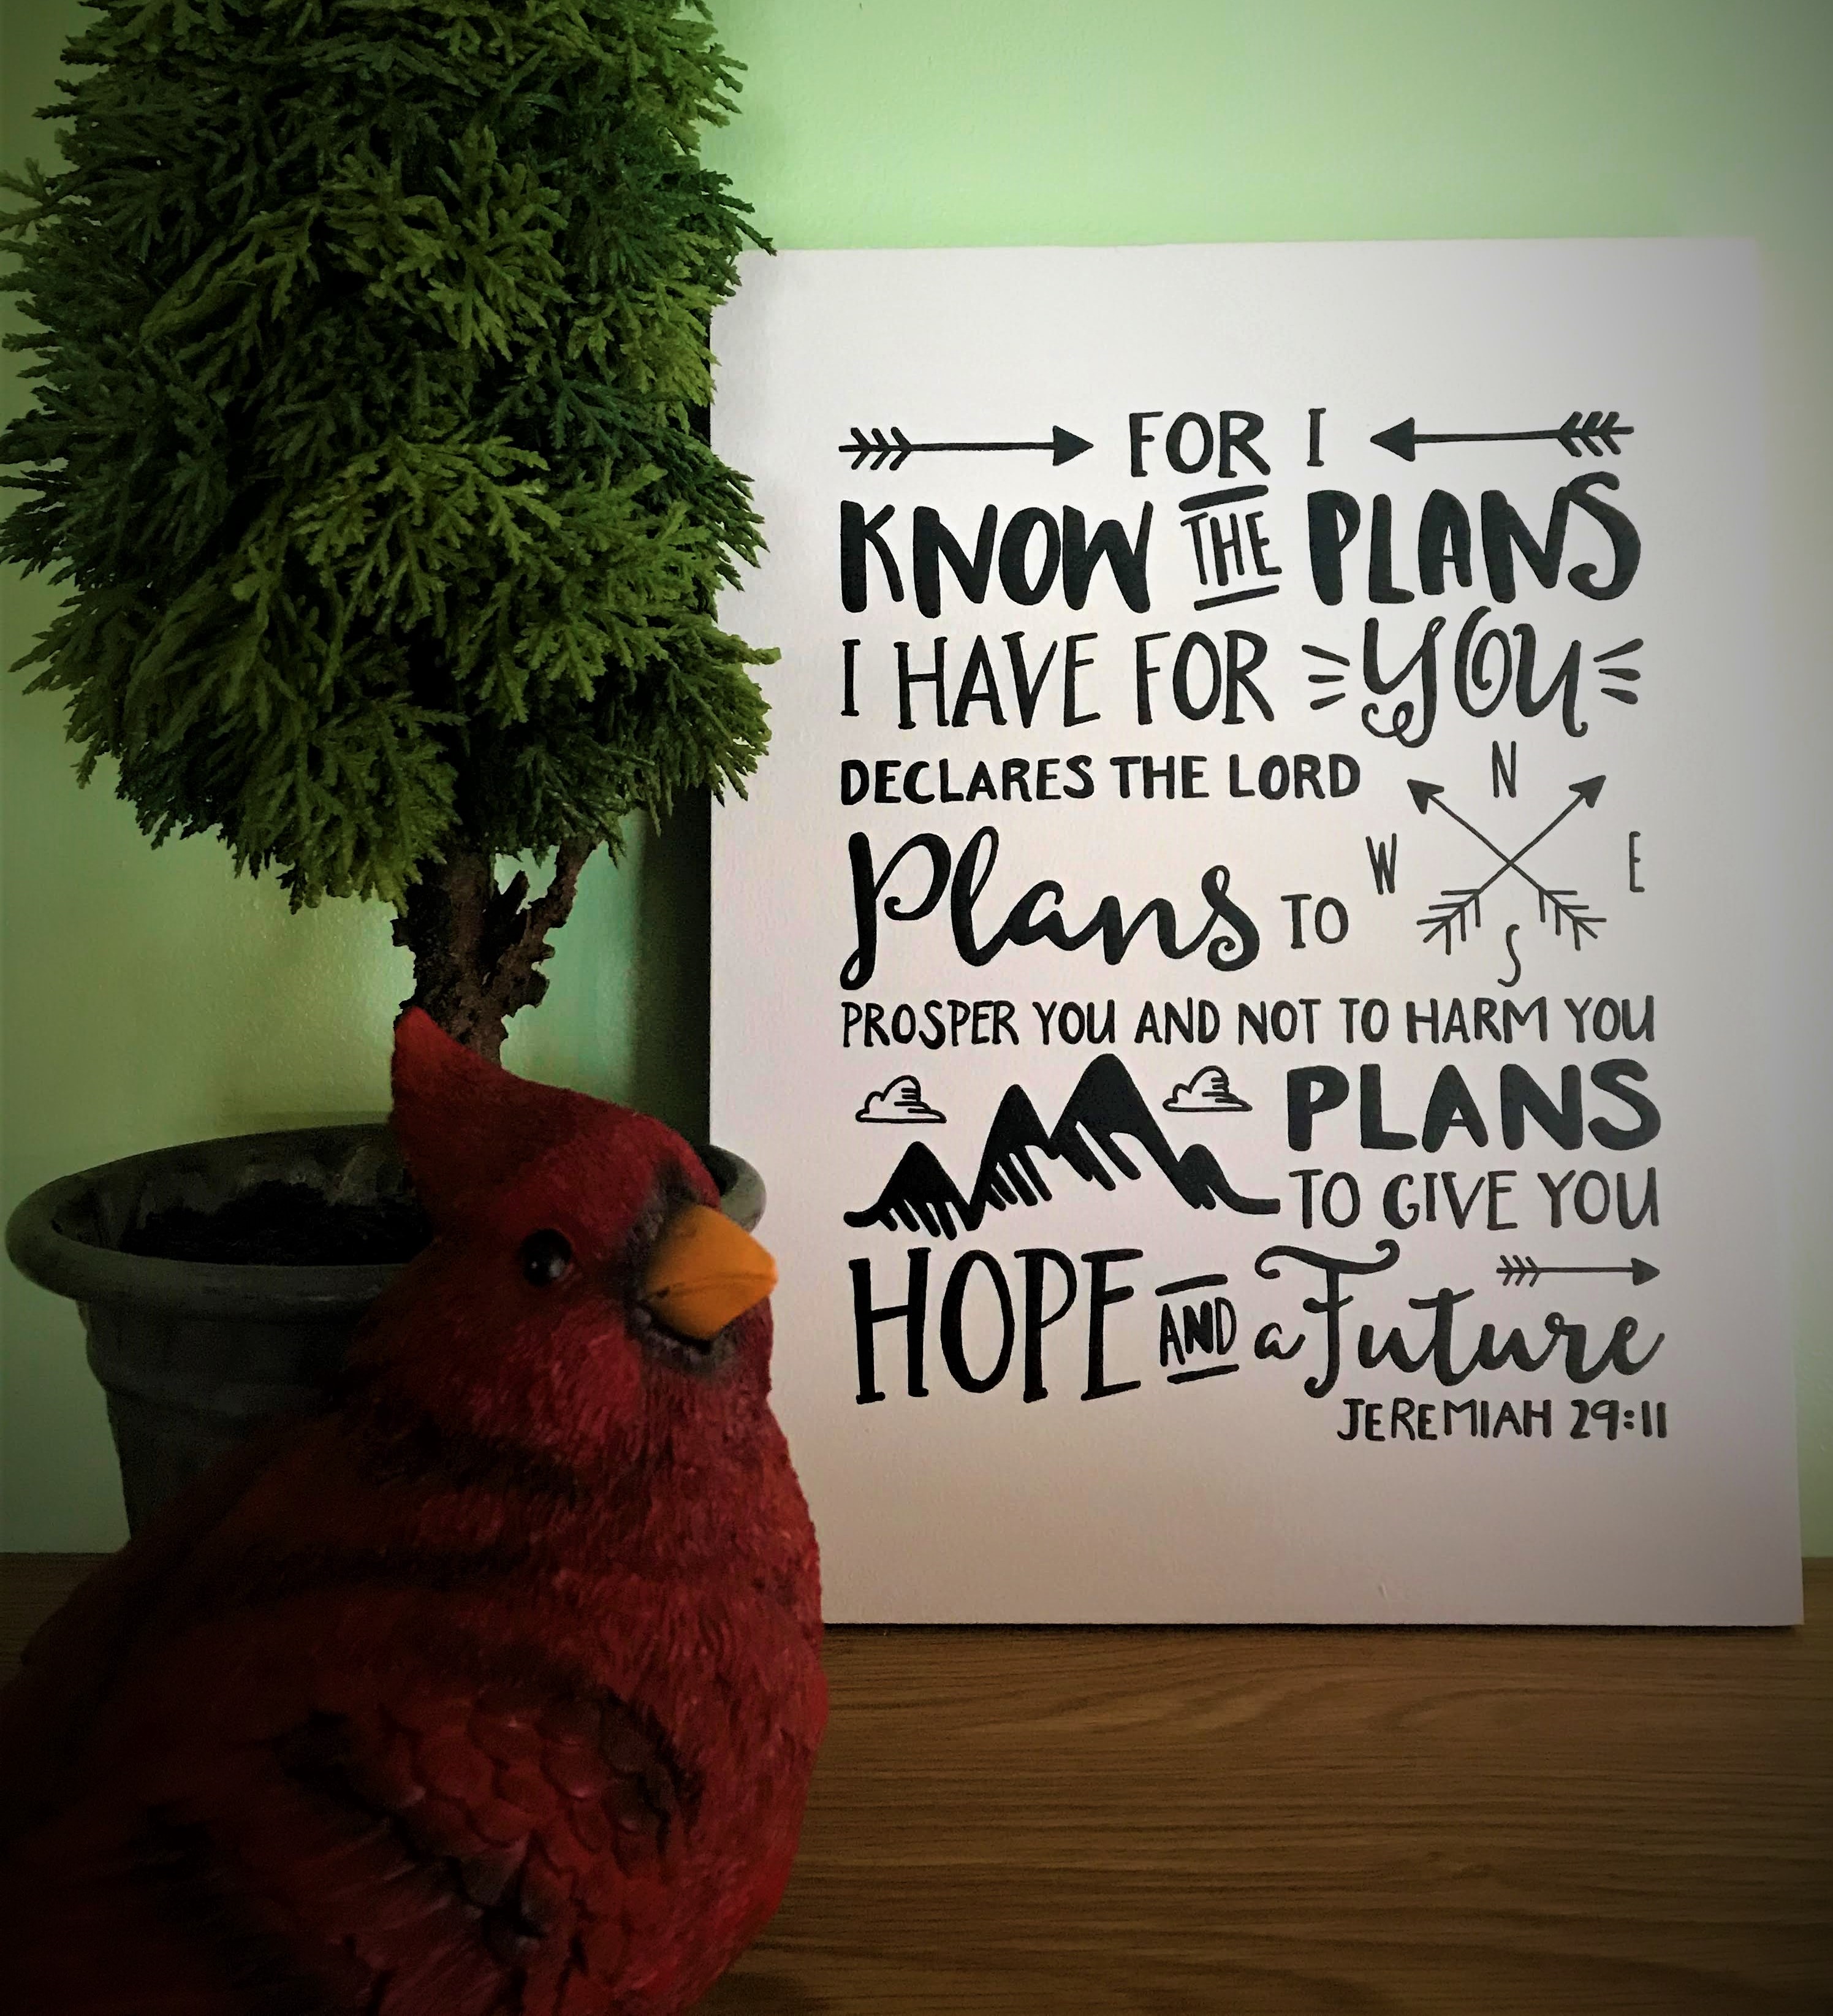 FOR I
KNOW THE PLANS
I HAVE FOR YOU
DECLARES THE LORD
N
W E
S
Plans TO
PROSPER YOU AND NOT TO HARM YOU
PLANS
TO GIVE YOU
HOPE AND a Future
JEREMIAH 29:11